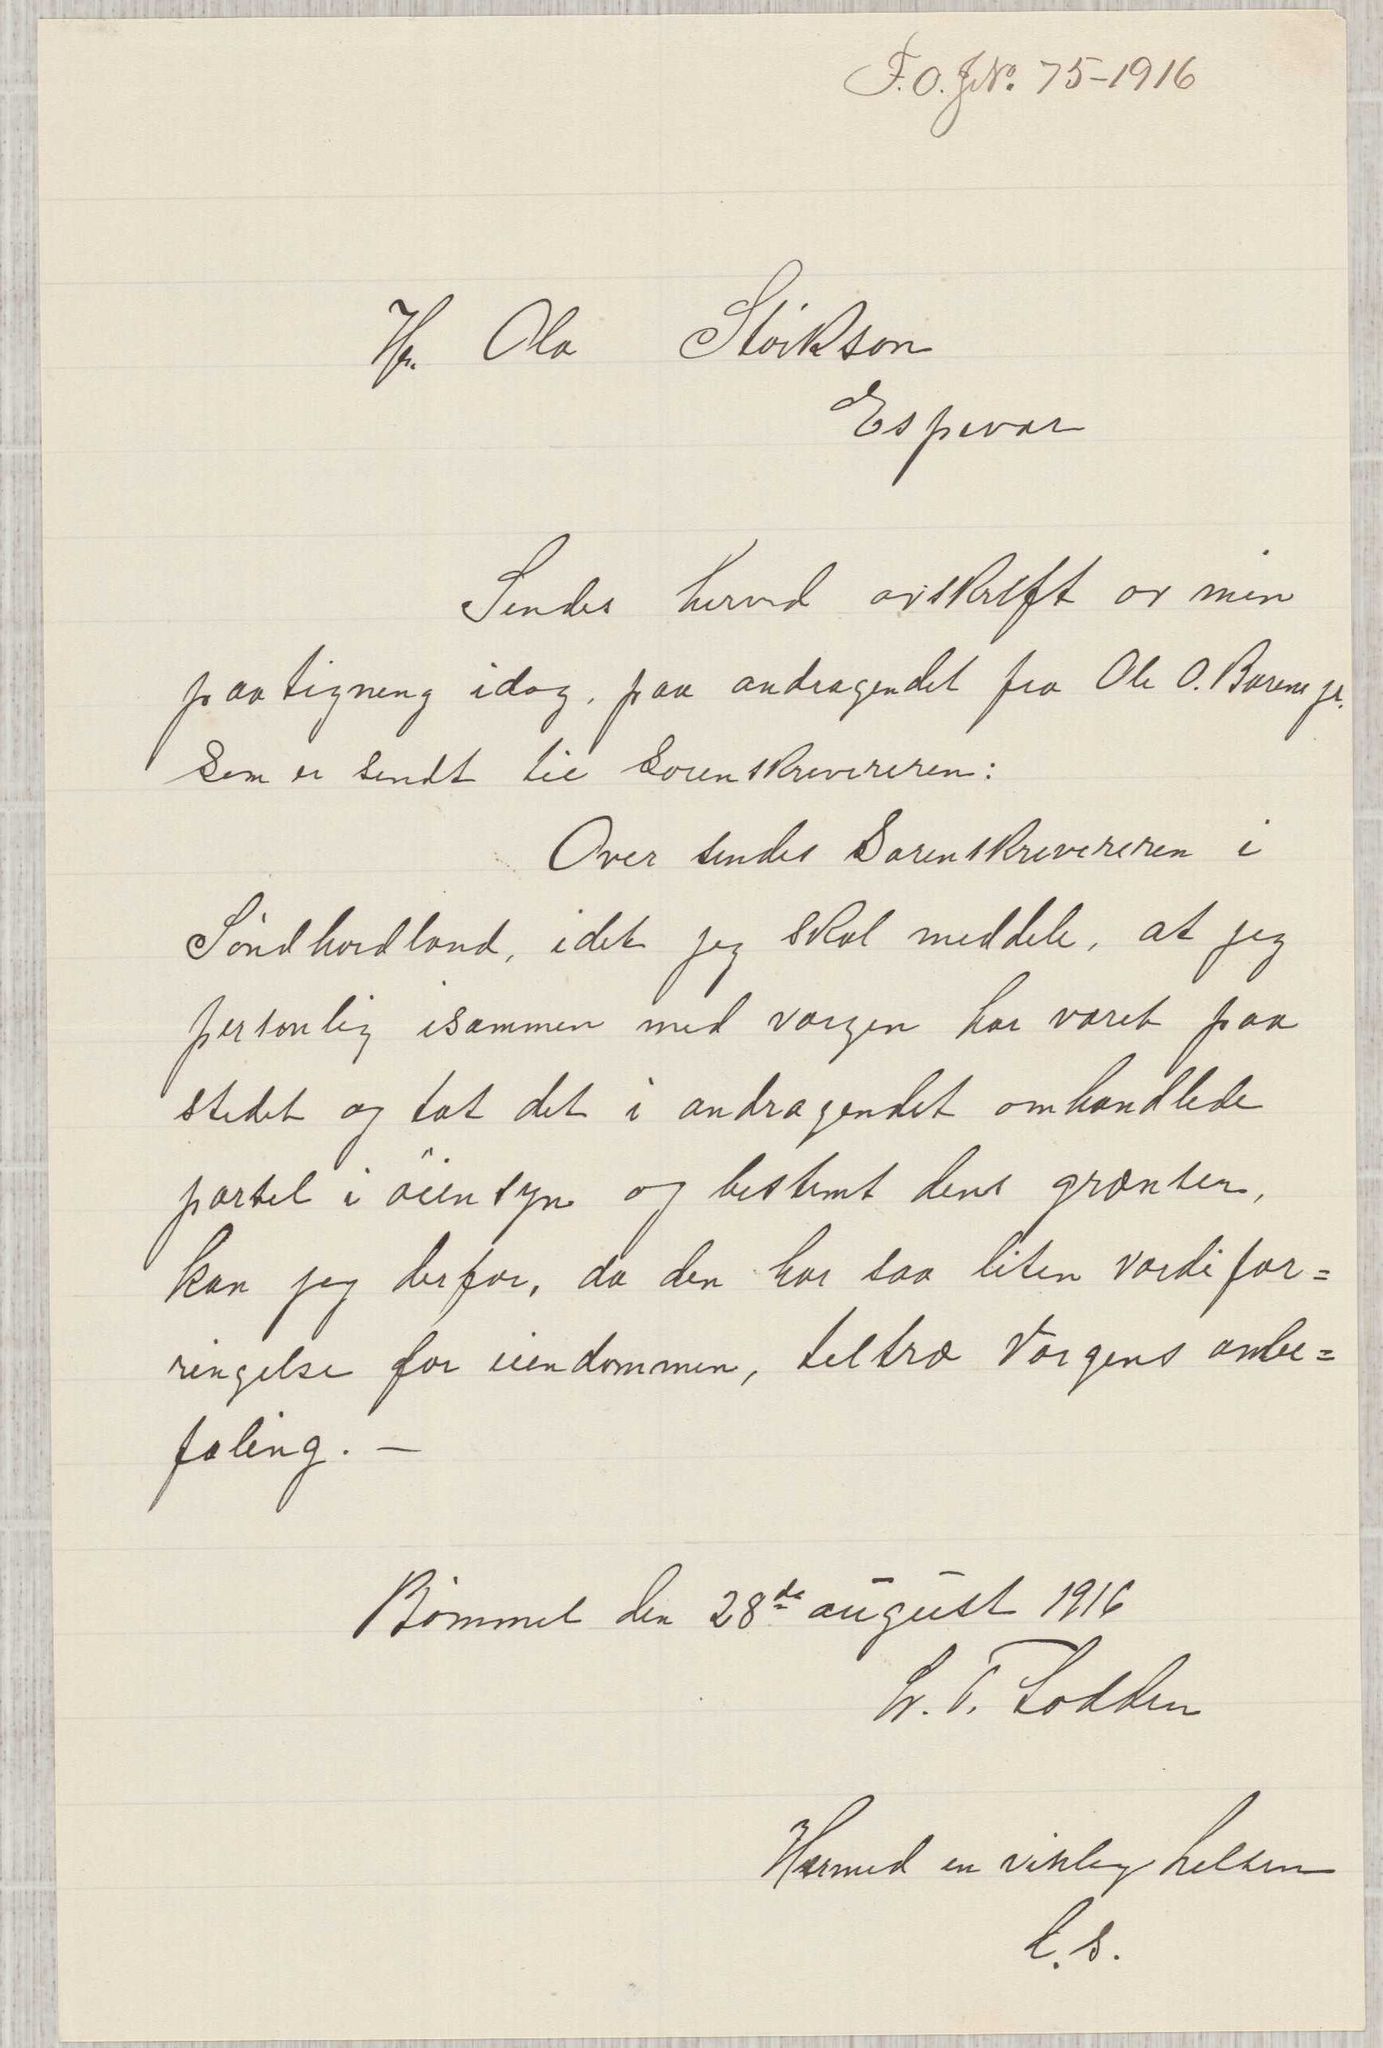 F.O.JNo. 75-1916
Hr. Ola Störkson
Espevær
Sendes herved avskrift av min
paategning idag, paa andragendet fra Ole O. Barane jr.
som er sendt til Sorenskriveren:
Over sendes Sorenskriveren i
Söndhordland, idet jeg skal meddele, at jeg
personlig isammen med værgen har været paa
stedet og tat det i andragendet omhandlede
parsel i öiensyn og bestemt dens grænser,
kan jeg derfor, da den har saa liten værdifor=
ringelse for eiendommen, tiltræ Værgens anbe=
faling. —
Bömmel den 28de august 1916
T. Lodden
Hermed en vinlig helsen